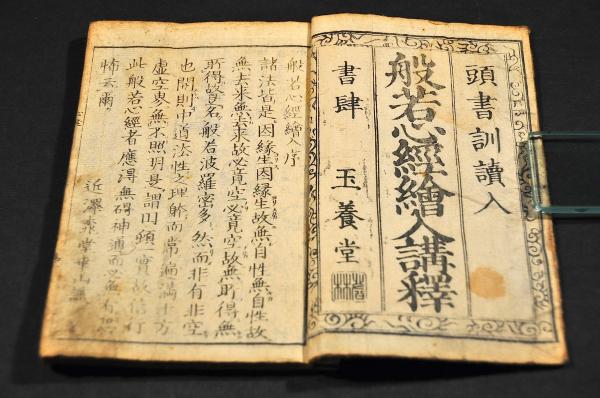 頭書訓讀入
般若心經繪入講釋
書肆 玉養堂
般若心經繪入序
諸法皆是因縁生因縁生故無自性無自性故
無去來無來故必竟空必竟空故無所得無
所得故是名般若波羅密多然而非有非空
也則中道法性之理躰而常遍滿十方
虚空界無不照明是謂一實故信行
此般若心經者應得無碍神通而必無有恐
怖云爾
近澤堂